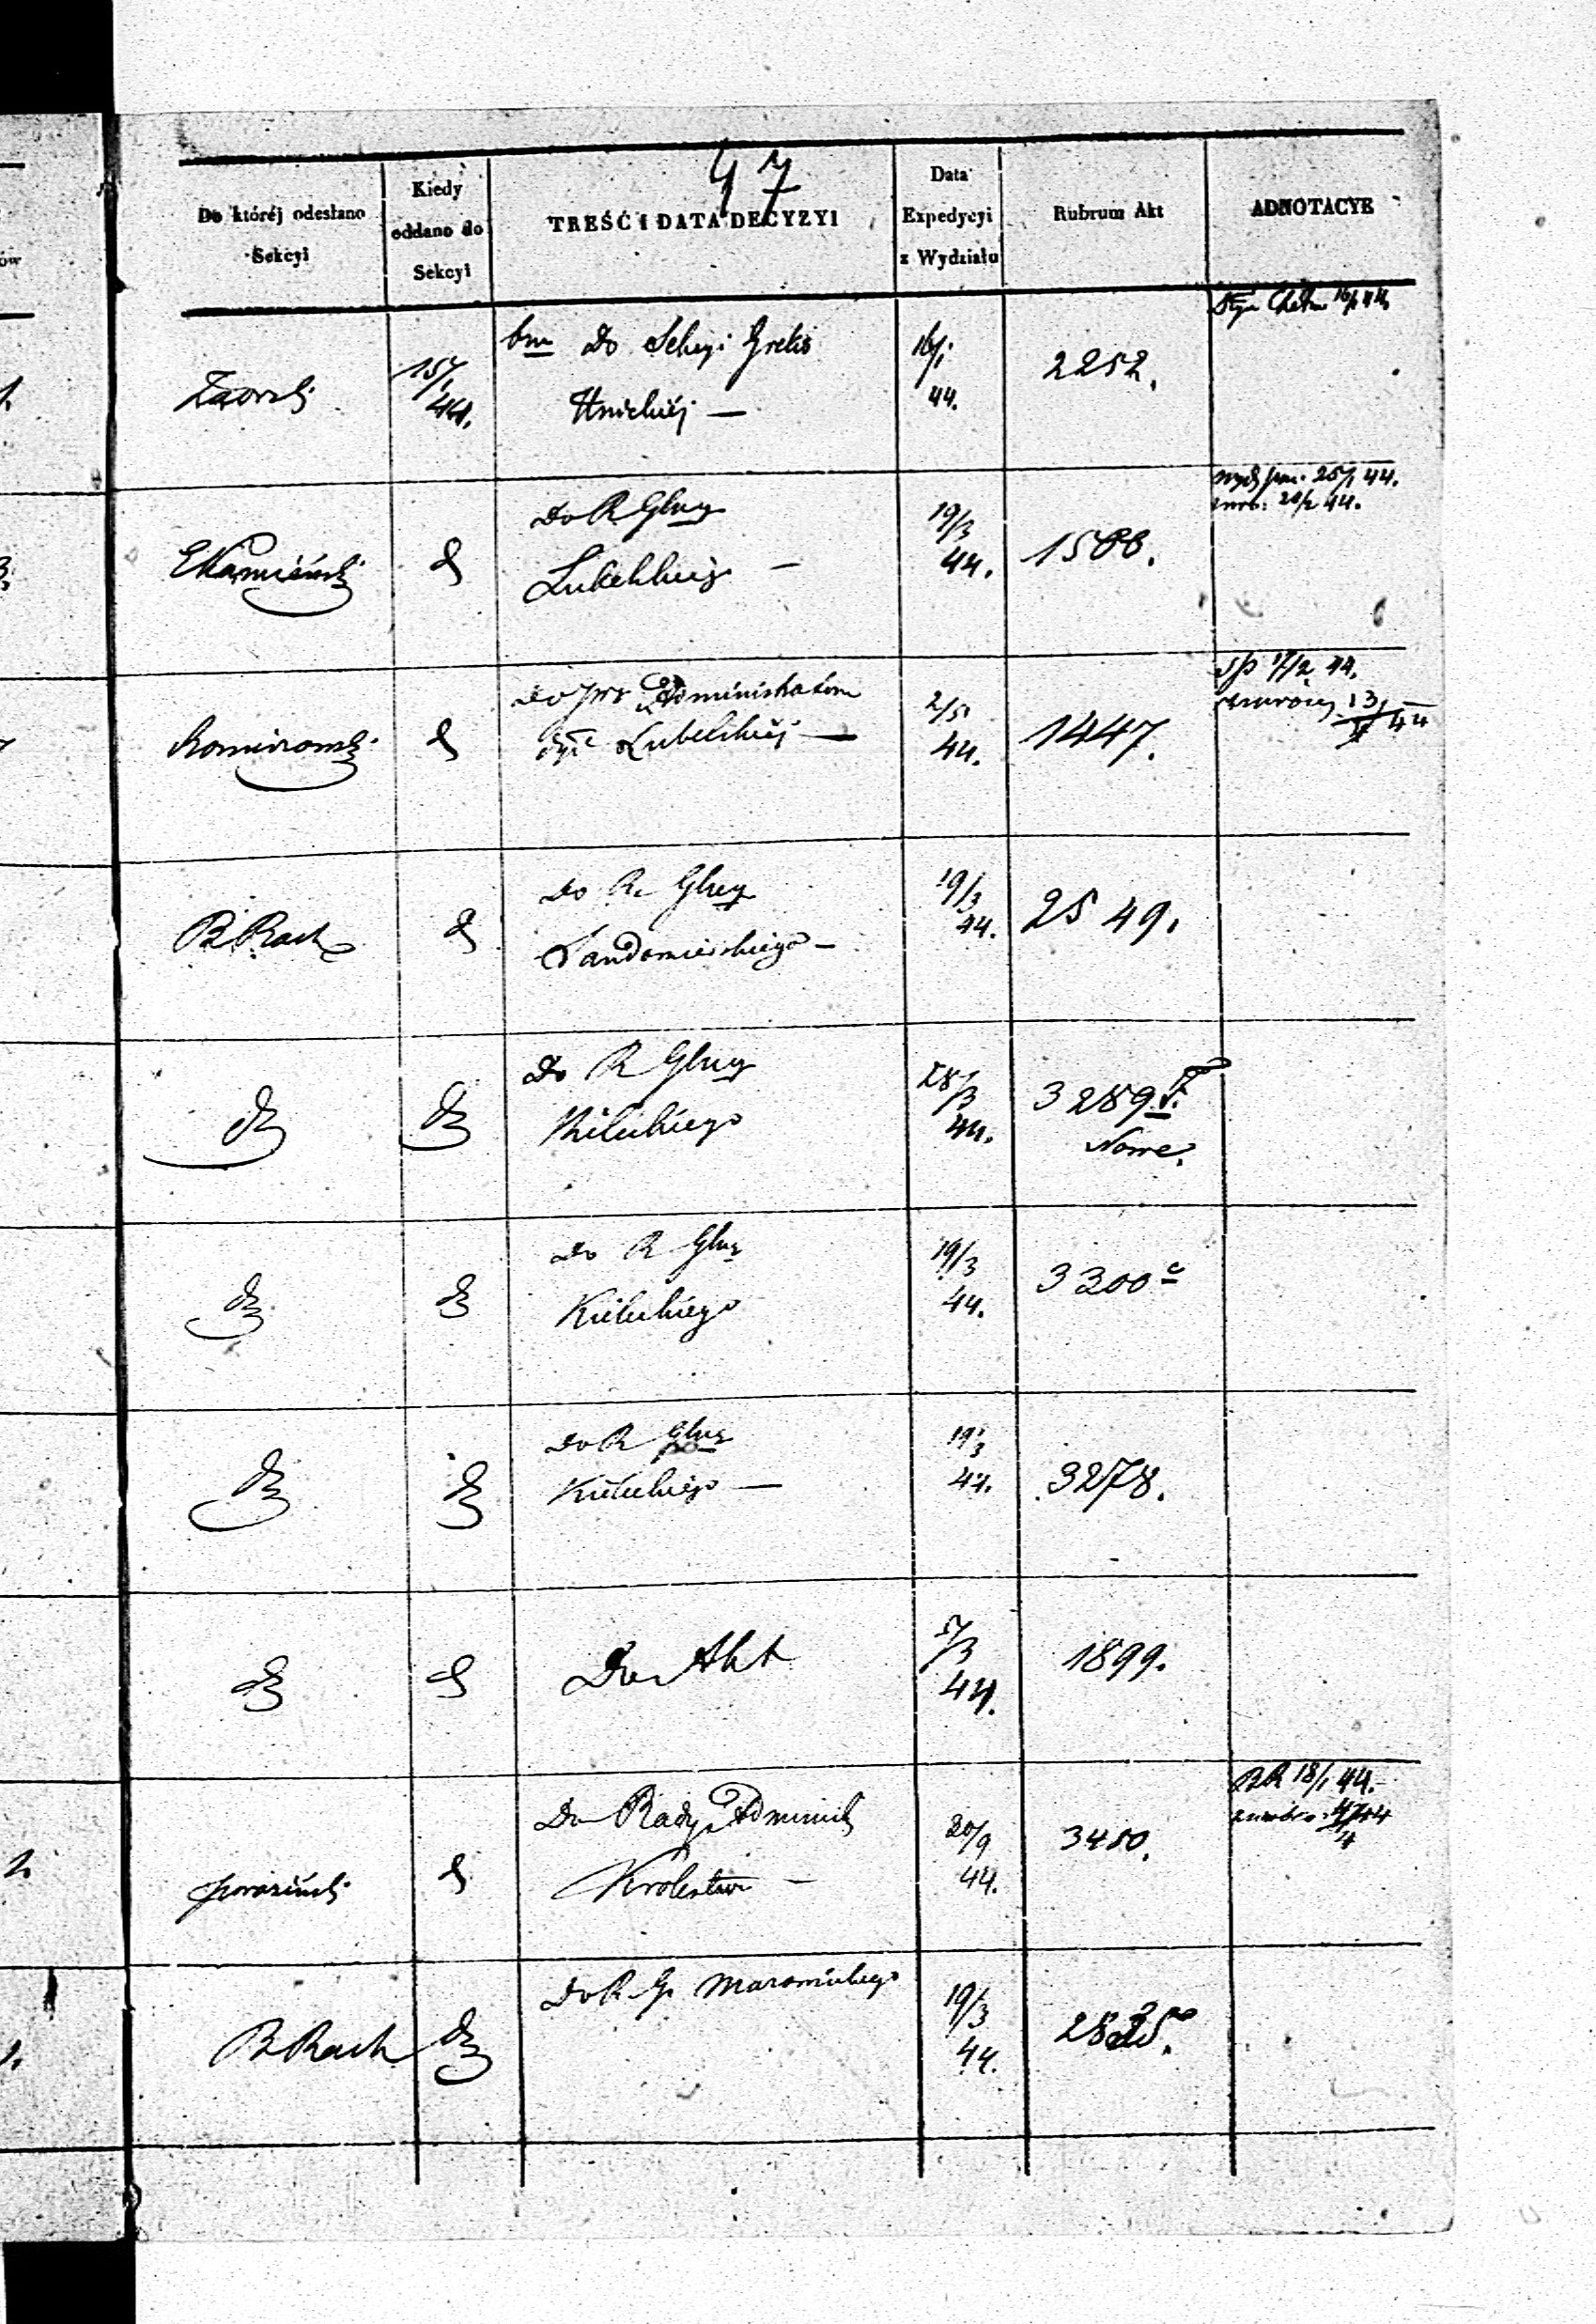 47
Do któréj odesłano
Sekcyi
Kiedy
oddano do
Sekcyi
TREŚĆ I DATA DECYZYI
Data
Expedycyi
z Wydziału
Rubrum Akt
ADNOTACYE
15/1
44.
Do Sekcyi Greko
Unickiéj —
16/1
44.
2252.
16/1 44
EKamiński
Do R Gbug
Lubelskiego —
19/3
44.
1588.
25/1 44.
44.
Do Administratora
Lubelskiéj —
2/5
44.
1447.
17/2 44.
BRach
Do R. Gbug
Sandomierskiego —
19/3
44.
2549.
Do R Gbug
Kieleckiego
28/3
44.
3289
Nowe.
Do R Gbug
Kieleckiego
19/3
44.
3300
Do R Gbug
Kieleckiego —
19/3
44.
3278.
Do Akt
5/3
44.
1899.
Do Rady Administ
Królestwa —
20/9
44.
3450.
BR 18/1 44.
BRach
Do R. G. Mazowieckiego
19/3
44.